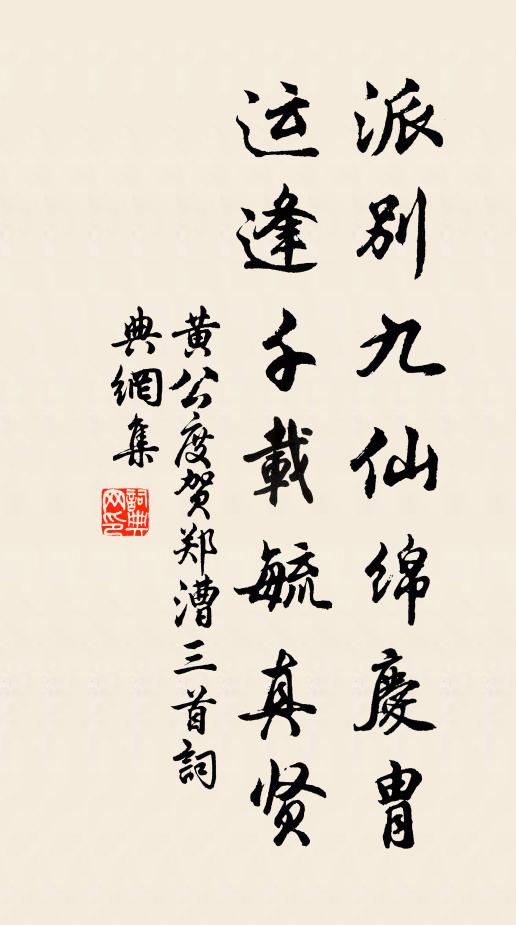 派别九仙绵慶胄
运逢千載毓真贤
黄公度贺郑漕三首詞
典網集
詞典网印